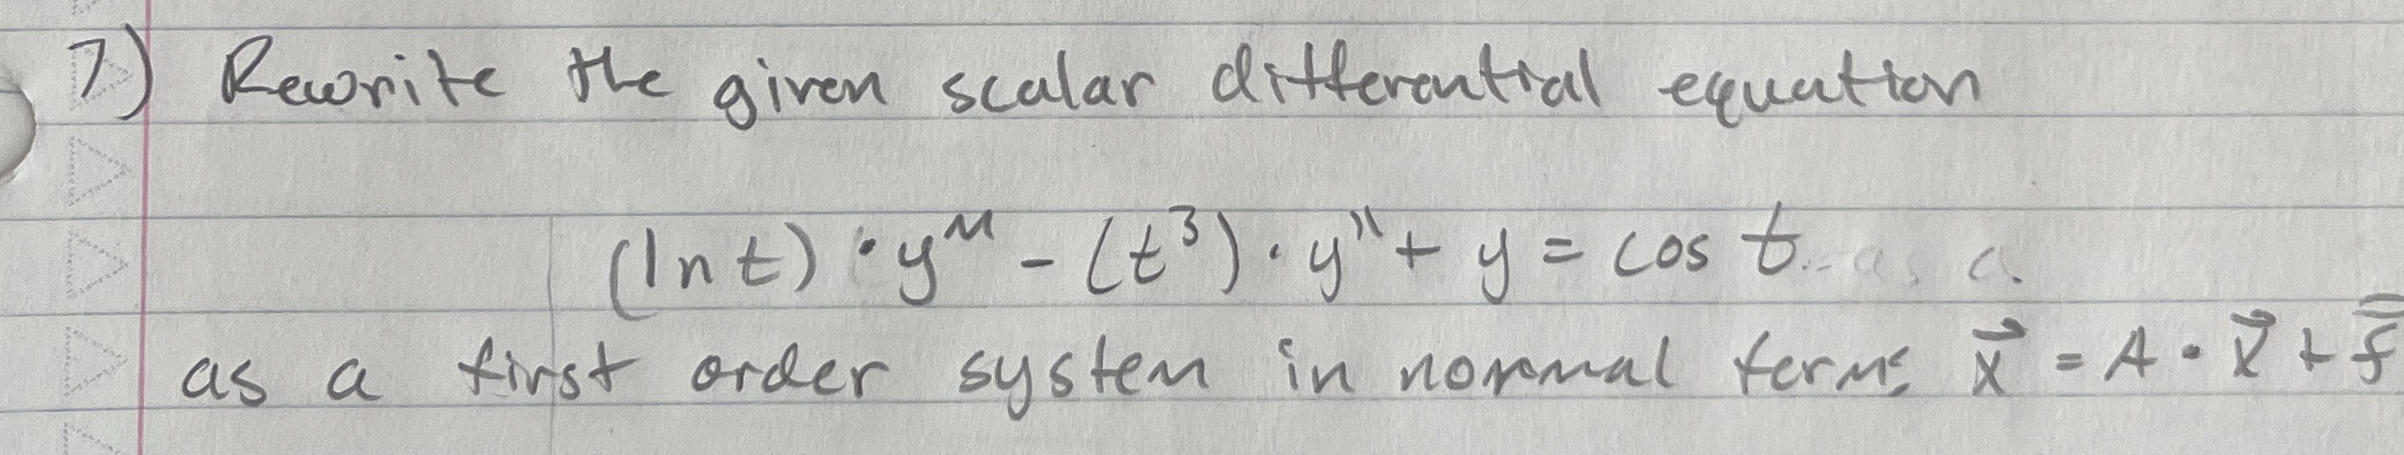 7) Rewrite the given scalar differential equation
(ln t) · y''' - (t³) · y'' + y = cos t. as a
as a first order system in normal form: x⃗ = A · x⃗ + f⃗